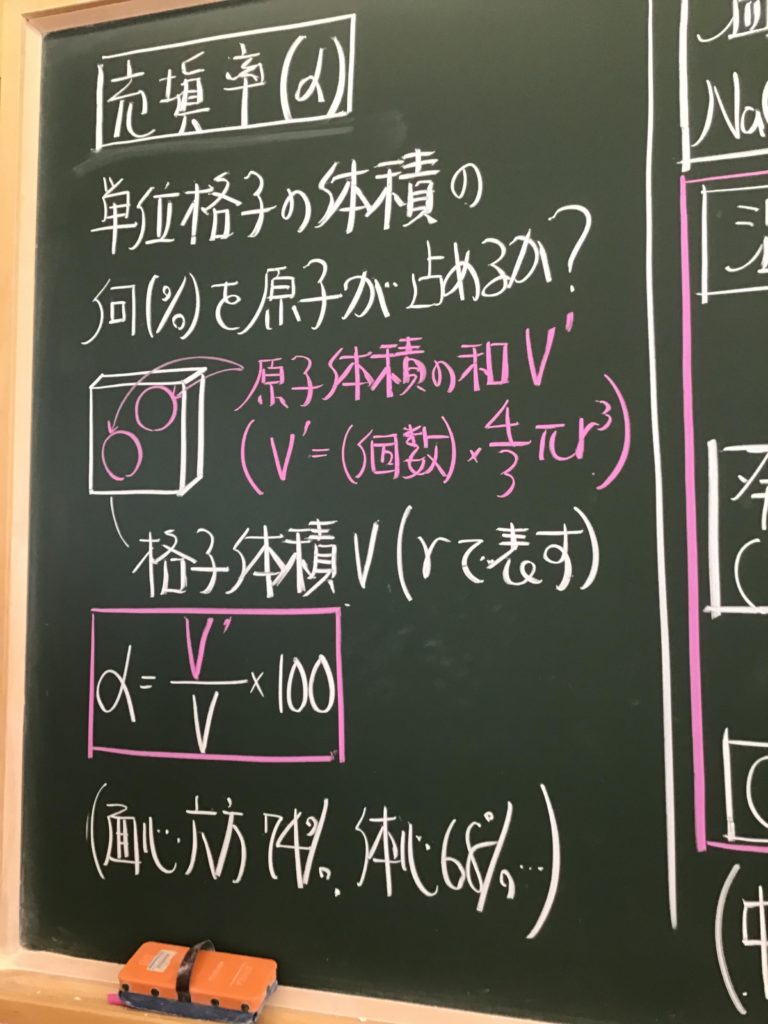 充填率(α)
単位格子の体積の
何(%)を原子が占めるか?
原子体積の和 V'
(V'=(個数)×4/3πr³)
格子体積V(rで表す)
α=V'/V×100
(面心・六方 74%, 体心68%,…)
Na